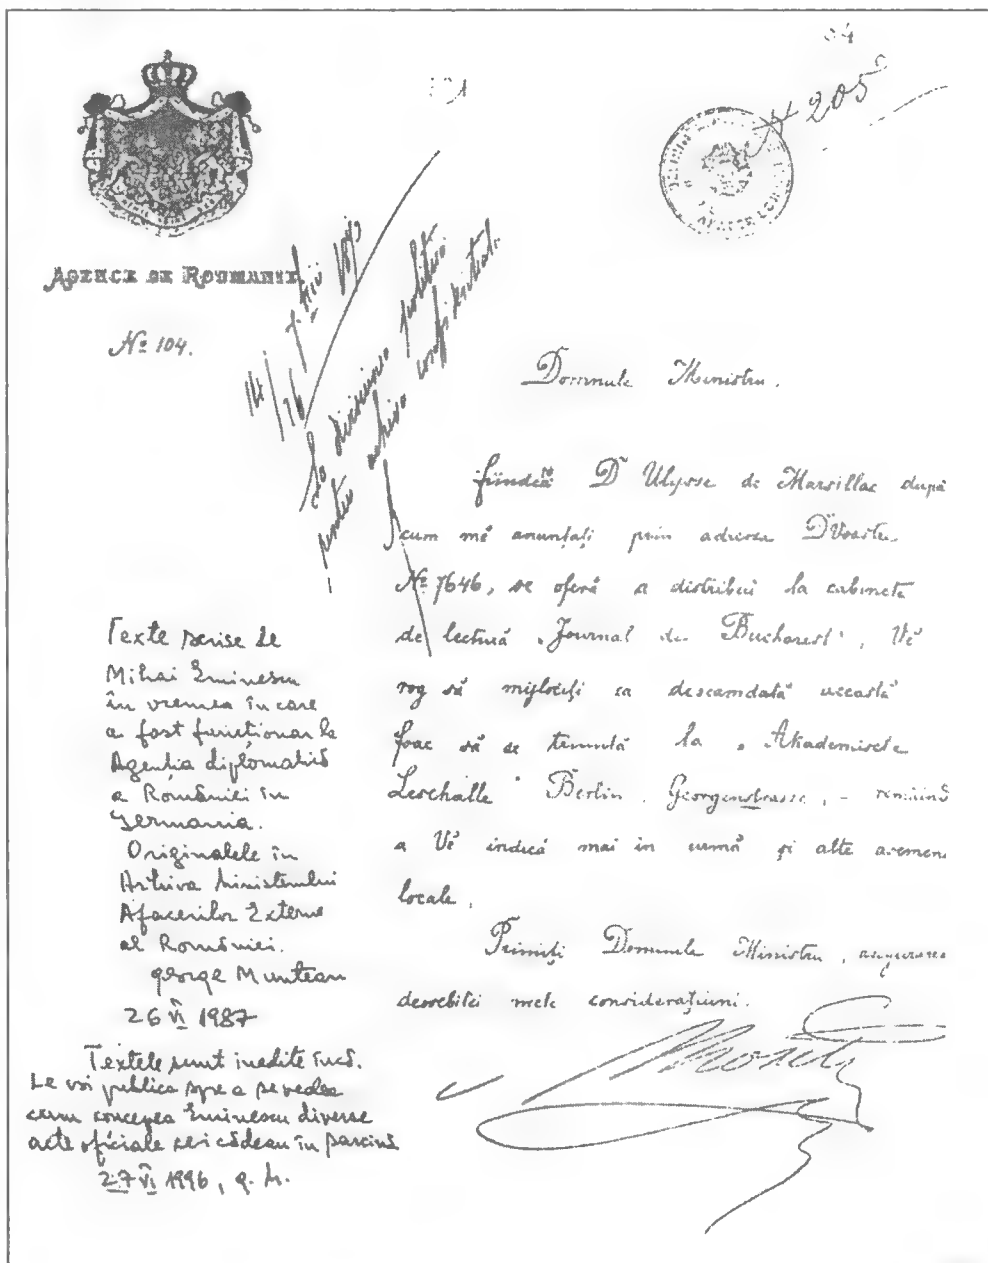 205
AGENCE DE ROUMANIE
Nº 104.
La diviziunea politică
pentru arhiva confidențială.
Domnule Ministru.
fiindcă D Ulysse de Marsillac după
cum mĕ anunțați prin adresa DVoastre
Nº 7646, se oferă a distribui la cabinete
de lectură „Journal de Bucharest", Vĕ
rog să mijlociți ca deocamdată această
foae să se trimită la „Akademische
Lesehalle" Berlin, Georgenstrasse, –
a Vĕ indica mai in urmă și alte asemene
locale.
Primiți Domnule Ministru, asigurarea
deosebitei mele considerațiuni.
Texte scrise de
Mihai Eminescu
în vremea în care
a fost funcționar la
Agenția diplomatică
a României în
Germania.
Originalele în
Arhiva Ministerului
Afacerilor Externe
al României.
George Muntean
26 VI 1987
Textele sunt inedite încă.
Le voi publica spre a se vedea
cum concepea Eminescu diverse
acte oficiale ce-i cădeau în sarcină
27 VI 1996, g. M.